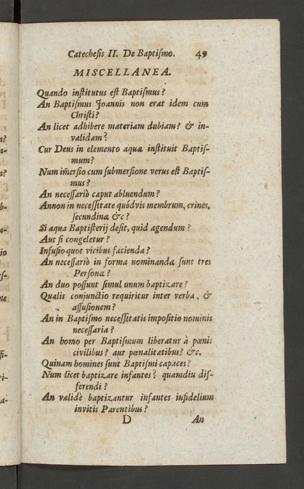 Catechesis II. De Baptismo. 49
MISCELLANEA.
Quando institutus est Baptismus?
An Baptismus Joannis non erat idem cum
Christi?
An licet adhibere materiam dubiam? & in-
validam?
Cur Deus in elemento aquæ instituit Baptis-
mum?
Num im̄ersio cum submersione verus est Baptis-
mus?
An necessariò caput abluendum?
Annon in necessitate quódvis membrum, crines,
secundina &c?
Si aqua Baptisterij desit, quid agendum?
Aut si congeletur?
Infusio quot vicibus facienda?
An necessariò in forma nominandæ sunt tres
Personæ?
An duo possunt simul unum baptizare?
Qualis conjunctio requiritur inter verba, &
affusionem?
An in Baptismo necessitatis impositio nominis
necessaria?
An homo per Baptismum liberatur à pœnis
civilibus? aut pœnalitatibus? &c.
Quinam homines sunt Baptismi capaces?
Num licet baptizare infantes? quamdiu dif-
ferendi?
An validè baptizantur infantes infidelium
invitis Parentibus?
D An